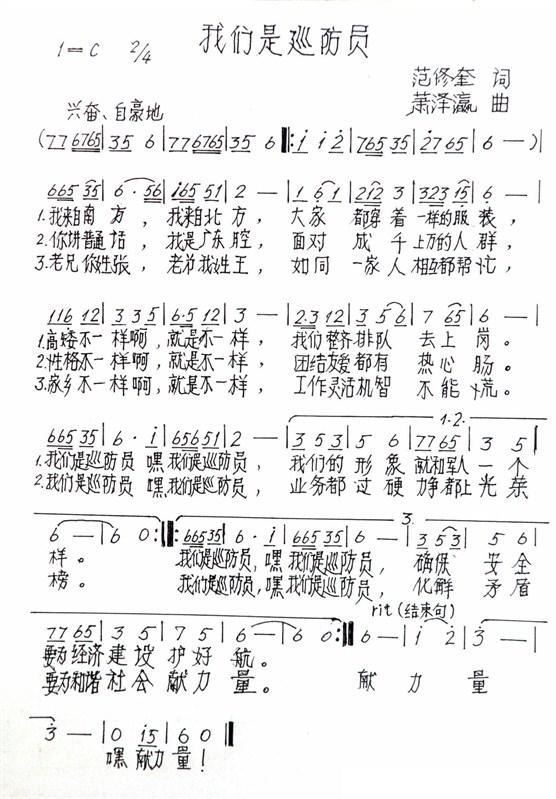 我们是巡防员
1=C 2/4
范修奎 词
萧泽瀛 曲
兴奋、自豪地
(77 6765 | 35 6 | 77 6765 | 35 6 :‖: i i 2 | 765 35 | 2765 | 6 — ) |
665 35 | 6 · 56 | i65 51 | 2 — | 1 6 1 | 212 3 | 323 15 | 6 — |
1.我来自南方,我来自北方,大家都穿着一样的服装,
2.你讲普通话,我是广东腔,面对成千上万的人群,
3.老兄你姓张,老弟我姓王,如同一家人相互都帮忙,
116 12 | 3 3 5 | 6·5 12 | 3 — | 2·3 12 | 3 5 6 | 7 65 | 6 — |
1.高矮不一样啊,就是不一样,我们整齐排队去上岗。
2.性格不一样啊,就是不一样,团结友爱都有热心肠。
3.家乡不一样啊,就是不一样,工作灵活机智不能慌。
1.2.
665 35 | 6 · i | 656 51 | 2 — | 3 5 3 | 5 6 | 77 65 | 3 5 |
1.我们是巡防员嘿,我们是巡防员,我们的形象就和军人一个
2.我们是巡防员嘿,我们是巡防员,业务都过硬力争都上光荣
3.
6 — | 6 0 :‖: 665 35 | 6 · i | 665 35 | 6 — | 3 5 3 | 5 6 |
样。我们是巡防员,嘿我们是巡防员,确保安全
榜。我们是巡防员,嘿我们是巡防员,化解矛盾
rit(结束句)
77 65 | 3 5 | 7 5 | 6 — | 6 0 :‖ 6 — | i 2 | 3 — |
要为经济建设护好航。
要为和谐社会献力量。献力量
3 — | 0 i5 | 6 0 ‖
嘿献力量!